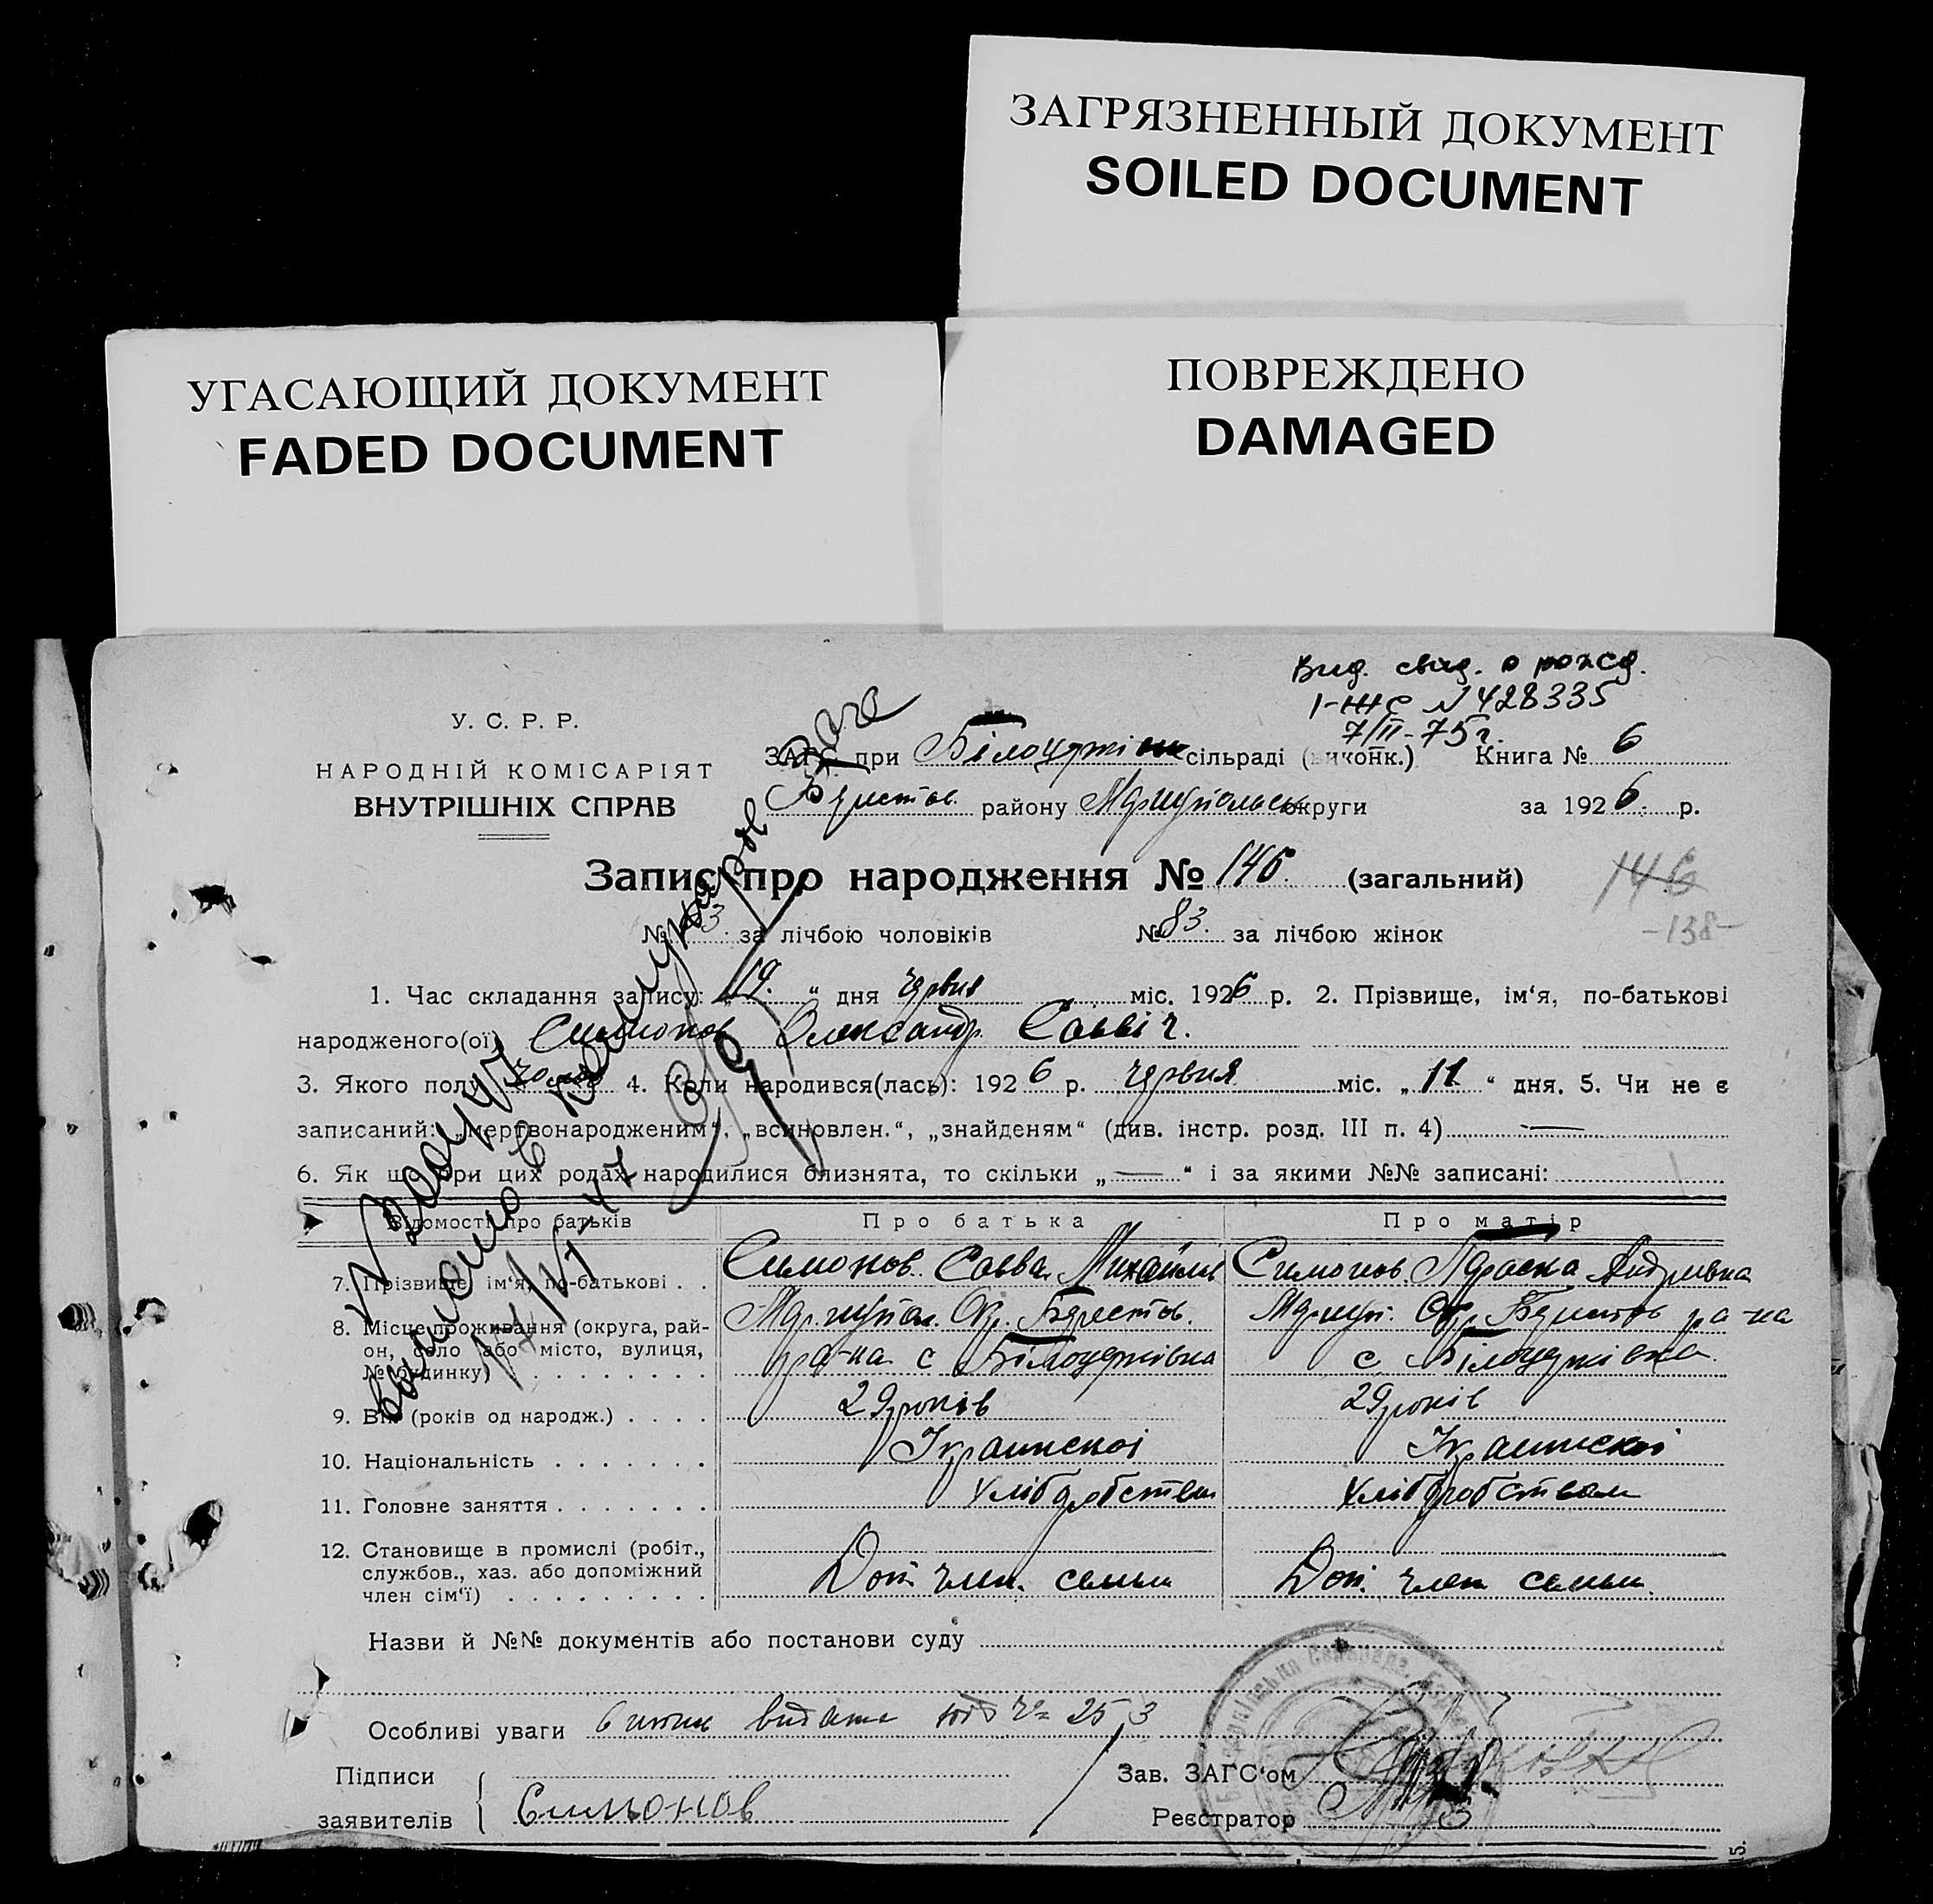 ЗАГРЯЗНЕННЫЙ ДОКУМЕНТ
SOILED DOCUMENT
УГАСАЮЩИЙ ДОКУМЕНТ
FADED DOCUMENT
ПОВРЕЖДЕНО
DAMAGED
Вид. свид. о рожд.
I-ЖС №428335
7/II-75г.
У. С. Р. Р.
НАРОДНІЙ КОМІСАРІЯТ
ВНУТРІШНІХ СПРАВ
ЗАГС при сільраді (виконк.) Книга № 6
району Маріупольськ округи за 1926 р.
Запис про народження № 146. (загальний)
146
-138-
№ за лічбою чоловіків № 83. за лічбою жінок
1. Час складання запису: „19.“ дня червня міс. 1926 р. 2. Прізвище, ім‘я, по-батькові
народженого(ої) Симонов Олександр Саввіч.
3. Якого полу 4. Коли народився(лась): 1926 р. червня міс. „11“ дня. 5. Чи не є
записаний: „мертвонародженим“, „всиновлен.“, „знайденям“ (див. інстр. розд. III п. 4)
6. Як що при цих родах народилися близнята, то скільки „—“ і за якими №№ записані:
Відомості про батьків Про батька Про матір
7. Прізвище, ім‘я, по-батькові Симонов Савва Михайлів Симонов Параска Андріівна
8. Місце проживання (округа, рай-
он, село або місто, вулиця,
№ будинку)
Маріупол. Окр. ра-на с Білоцерківка
с Білоцерківка
9. Вік (років од народж.) 29 років 29 років
10. Національність Украинскоі Украинскоі
11. Головне заняття Хліборобством Хліборобством
12. Становище в промислі (робіт.,
службов., хаз. або допоміжний
член сім‘ї)
Доп. член. семьи Доп. член семьи.
Назви й №№ документів або постанови суду
Особливі уваги видана
Підписи
заявителів Симонов
Зав. ЗАГС‘ом
Реєстратор